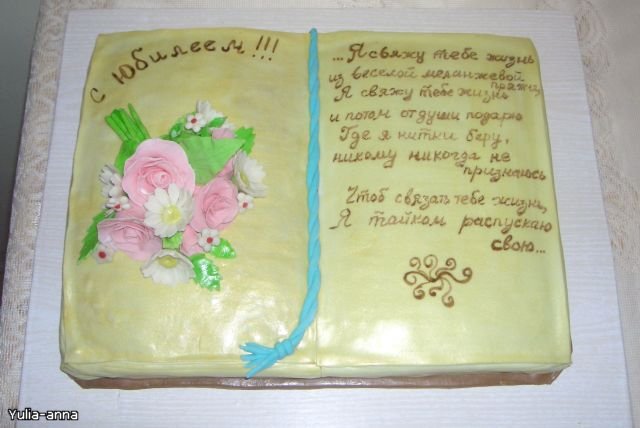 С Юбилеем!!!
...Я свяжу тебе жизнь
из веселой меланжевой
пряжи,
Я свяжу тебе жизнь
и потом от души подарю
Где я нитки беру,
никому никогда не
признаюсь
Чтоб связать тебе жизнь,
Я тайком распускаю
свою...
Yulia-anna